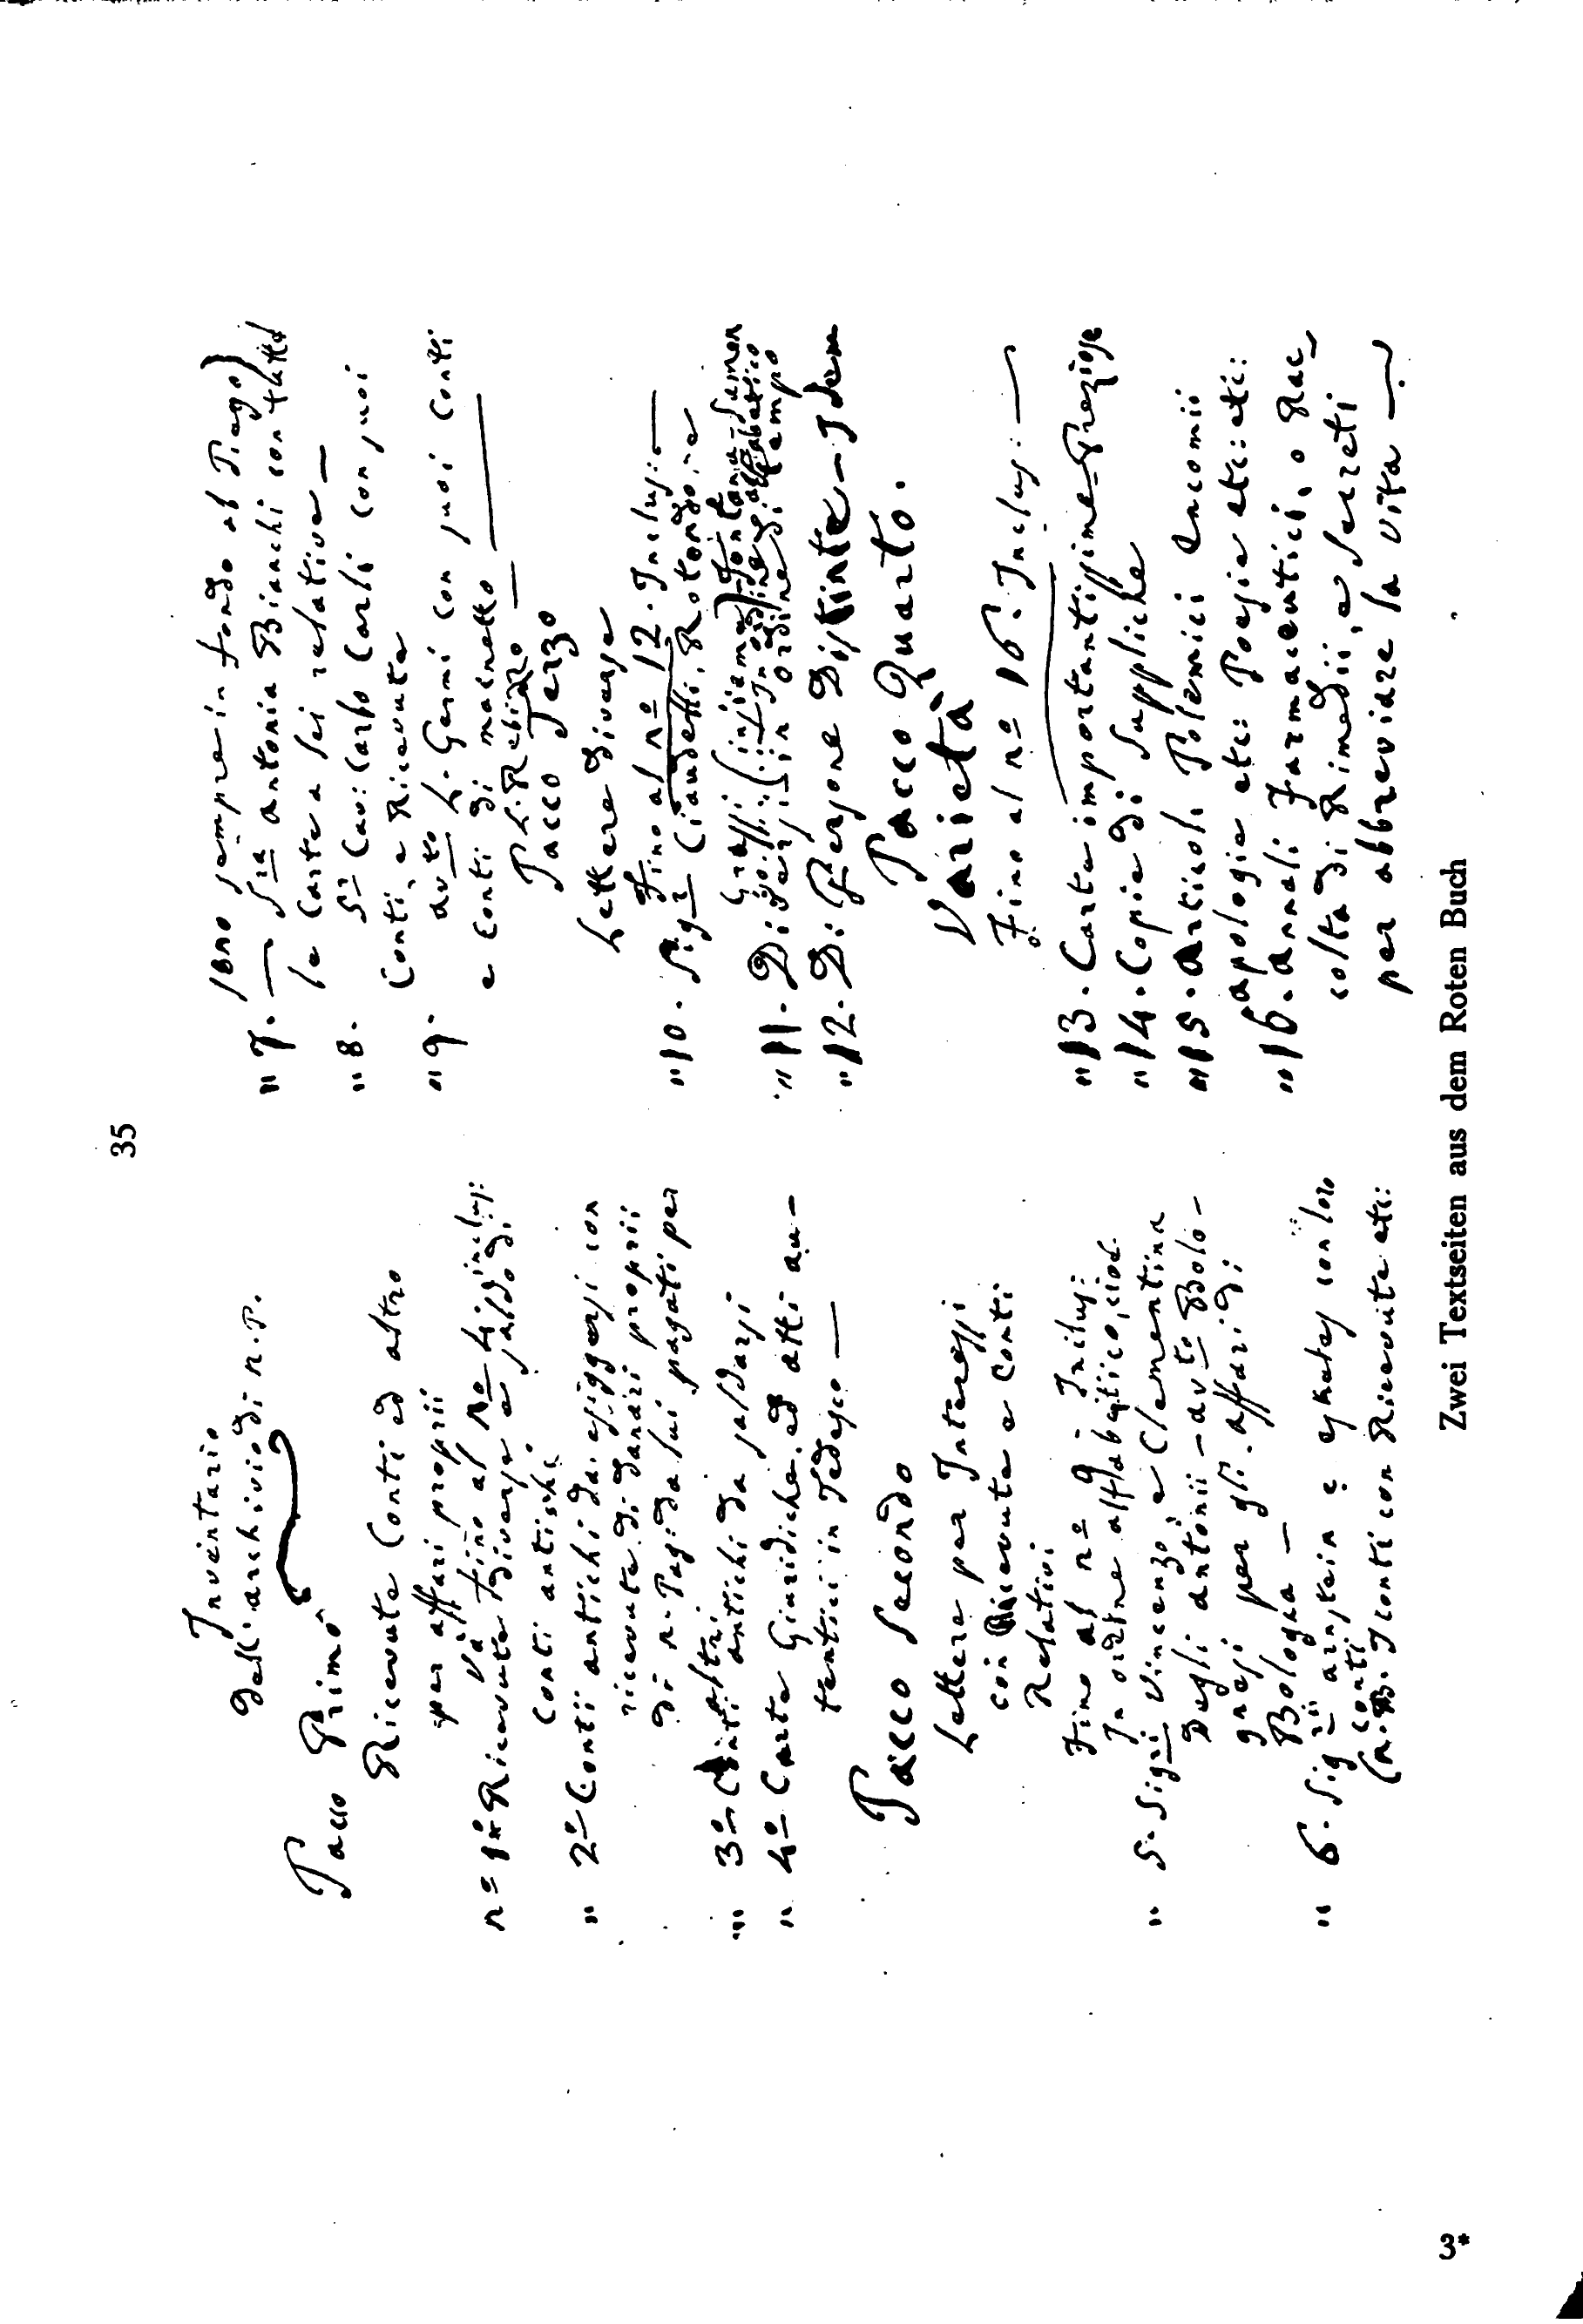 35
Inventario
dell'archivio di N.P.
Pacco Primo
Ricevute Conti ed altro
per affari proprii
Và fino al No 4 inclus:
no 1o Ricevute diverse a saldo di
Conti antichi.
" 2o Contii antichi da esiggersi con
ricevute di danari proprii
di N. Pag: da lui pagati per
altri
" 3o Conti antichi da saldarsi
" 4o Carte Giuridiche, ed atti au-
tentici in Tedesco —
Pacco Secondo
Lettere per Interessi
con Ricevute e Conti
Relativi
Fino al no 9 Inclus:
In ordine alfabetico, cioè
" 5. Sigri Vincenzo, e Clementina
Degli Antonii — avto Bolo-
gnesi per gli affari di
Bologna —
" 6. Sigrii Arnstein e Eskeles con loro
Conti
(N.B. I conti con Ricevute etc:
sono sempre in fondo al Piego)
" 7. — Sra Antonia Bianchi con tutte
le Carte a lei relative —
" 8. Sr Cav: Carlo Carli con suoi
Conti, e Ricevute
" 9. avto L. Germi con suoi conti
e conti di Macnetto
P. L. Rebizzo —
Pacco Terzo
Lettere Diverse
Fino al no 12. Inclusi —
" 10. Sigr Ciandelli, Rotondo, e
Grassi (insieme)
" 11. Diversi
" 12. Di Persone Distinte — Idem
Pacco Quarto.
Varietà
Fino al no 16. Inclus: —
" 13. Carte importantissime — Preziose
" 14. Copie di Suppliche
" 15. Articoli Polemici Encomii
apologie etc: Poesie etc: etc:
" 16. Annali Farmaceutici, o Rac
colta di Rimedii, e Secreti
per abbreviare la vita —
Zwei Textseiten aus dem Roten Buch
3*